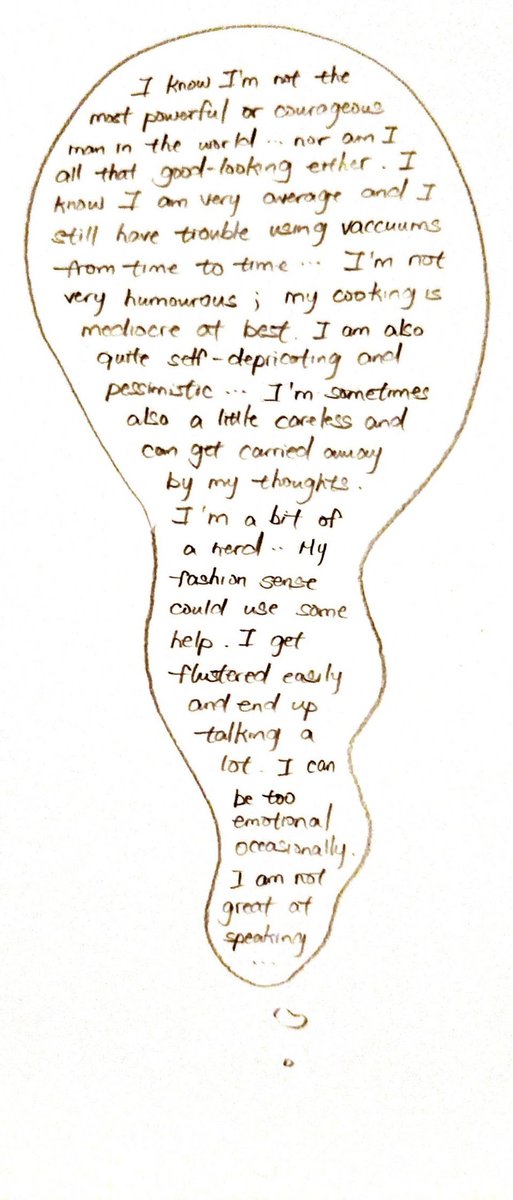 I know I'm not the
most powerful or courageous
man in the world ... nor am I
all that good-looking either. I
know I am very average and I
still have trouble using vaccuums
from time to time ... I'm not
very humourous ; my cooking is
mediocre at best. I am also
quite self-depricating and
pessimistic ... I'm sometimes
also a little careless and
can get carried away
by my thoughts.
I'm a bit of
a nerd .. My
fashion sense
could use some
help. I get
flustered easily
and end up
talking a
lot. I can
be too
emotional
occasionally.
I am not
great at
speaking
...